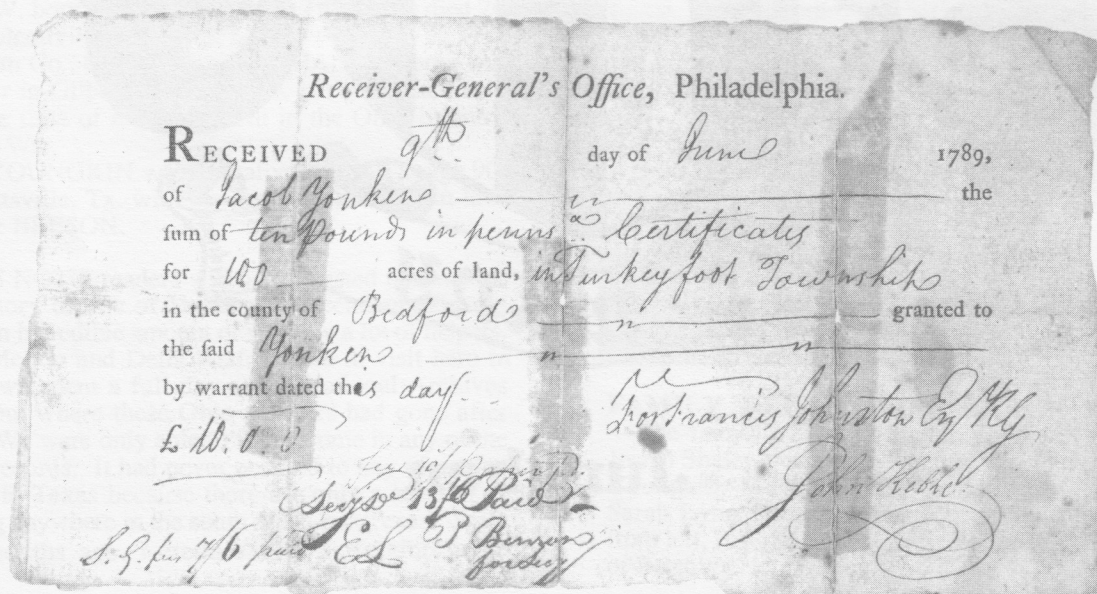 Receiver-General's Office, Philadelphia.
RECEIVED 9th day of June 1789,
of Jacob Yonken the
ſum of ten Pounds in pennsa Certificates
for 100 acres of land, in Turkeyfoot Township
in the county of Bedford granted to
the ſaid Yonken
by warrant dated this day.
£ 10.0.0
For Francis Johnston Esqr RG
John Keble
13/6 Paid
S. G. fees 7/6 paid E L P Benson